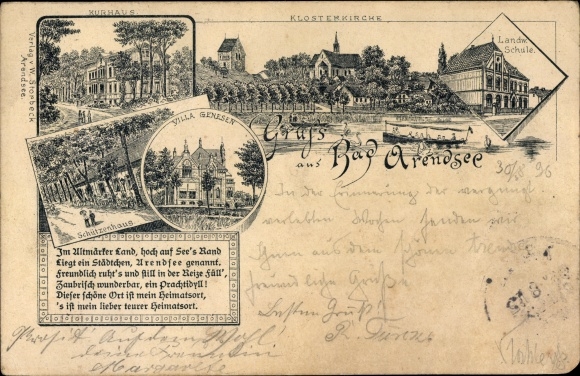 KURHAUS.
KLOSTERKIRCHE
Landw.
Schule.
Verlag v. W. Störbeck
Arendsee.
VILLA GENESEN
Schützenhaus.
Gruss
aus Bad Arendsee
30/ 96
In der Erinnerung der vergnügt
verlebten Wochen senden wir
Ihnen aus dem
freundliche Grüße
Besten Gruß!
Im Altmärker Land, hoch auf See's Rand
Liegt ein Städtchen, Arendsee genannt.
Freundlich ruht's und still in der Reize Füll',
Zaubrisch wunderbar, ein Prachtidyll!
Dieser schöne Ort ist mein Heimatsort,
's ist mein lieber teurer Heimatsort.
Prosit Auf dem Wohl!
deine Freundin
Margarete